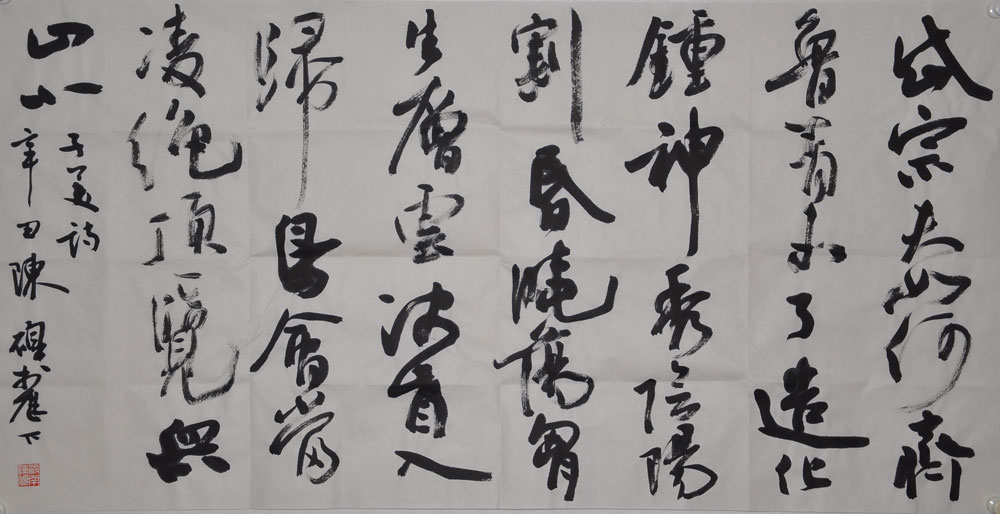 岱宗夫如何齊
魯青未了造化
鍾神秀陰陽
割昏曉蕩胸
生層雲決眥入
歸鳥會當
凌絕頂一覽眾
山小
子美詩
辛 陳